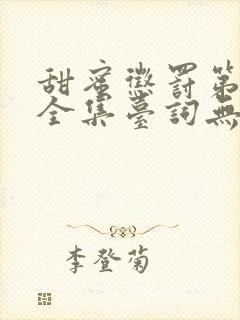 甜蜜懲罰第
全集臺詞無
李登菊